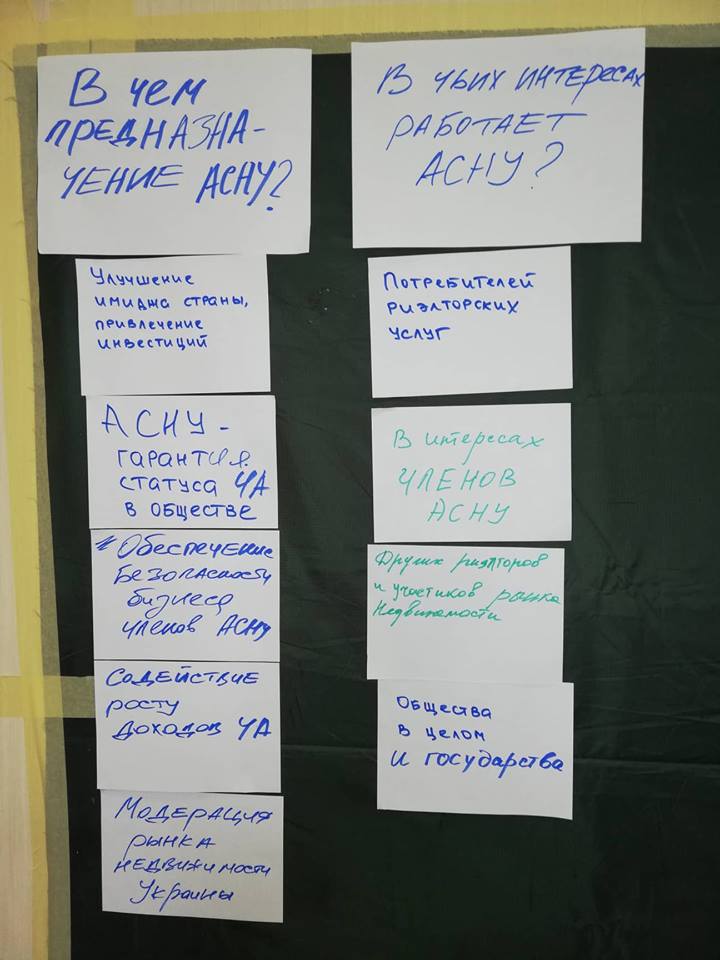 В чем
ПРЕДНАЗНА-
ЧЕНИЕ АСНУ?
Улучшение
имиджа страны,
привлечение
инвестиций
АСНУ -
гарантия
статуса ЧА
в обществе
Обеспечение
Безопасности
бизнеса
членов АСНУ
Содействие
росту
доходов ЧА
Модерация
рынка
недвижимости
Украины
В чьих интересах
работает
АСНУ?
Потребителей
риэлторских
услуг
В интересах
членов
АСНУ
Других риэлторов
и участиков рынка
Недвижимости
Общества
в целом
и государства